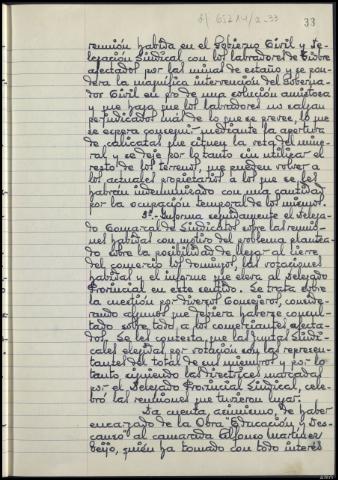 33
reunión habida en el Gobierno Civil y De-
legación Sindical con los labradores de
afectados por las minas de estaño y se pon-
dera la magnífica intervención del Goberna-
dor Civil en pro de una solución amistosa
y que haga que los labradores no salgan
perjudicados más de lo que se prevee, lo que
se espera conseguir mediante la apertura
de calicatas que sitúen la veta del mine-
ral y se deje por lo tanto sin utilizar el
resto de los terrenos, que pueden volver a
los actuales propietarios a los que se les
habrán indemnizado con una cantidad
por la ocupación temporal de los mismos.
3º.- Informa seguidamente el Delega-
do Comarcal de Sindicatos sobre las reunio-
nes habidas con motivo del problema plantea-
do sobre la posibilidad de llegar al cierre
del comercio los domingos, las votaciones
habidas y el informe que eleva al Delegado
Provincial en este sentido. Se trata sobre
la cuestión por diversos Consejeros, conside-
rando algunos que debiera haberse consul-
tado sobre todo a los comerciantes afecta-
dos. Se les contesta que las Juntas Sindi-
cales elegidas por votación son las represen-
tantes del total de sus miembros y por lo
tanto siguiendo las directrices marcadas
por el Delegado Provincial Sindical, cele-
bró las reuniones que tuvieron lugar.
Da cuenta, asimismo, de haber
encargado de la Obra "Educación y Des-
canso" al camarada Alfonso Martínez
Seijo, quién ha tomado con todo interés